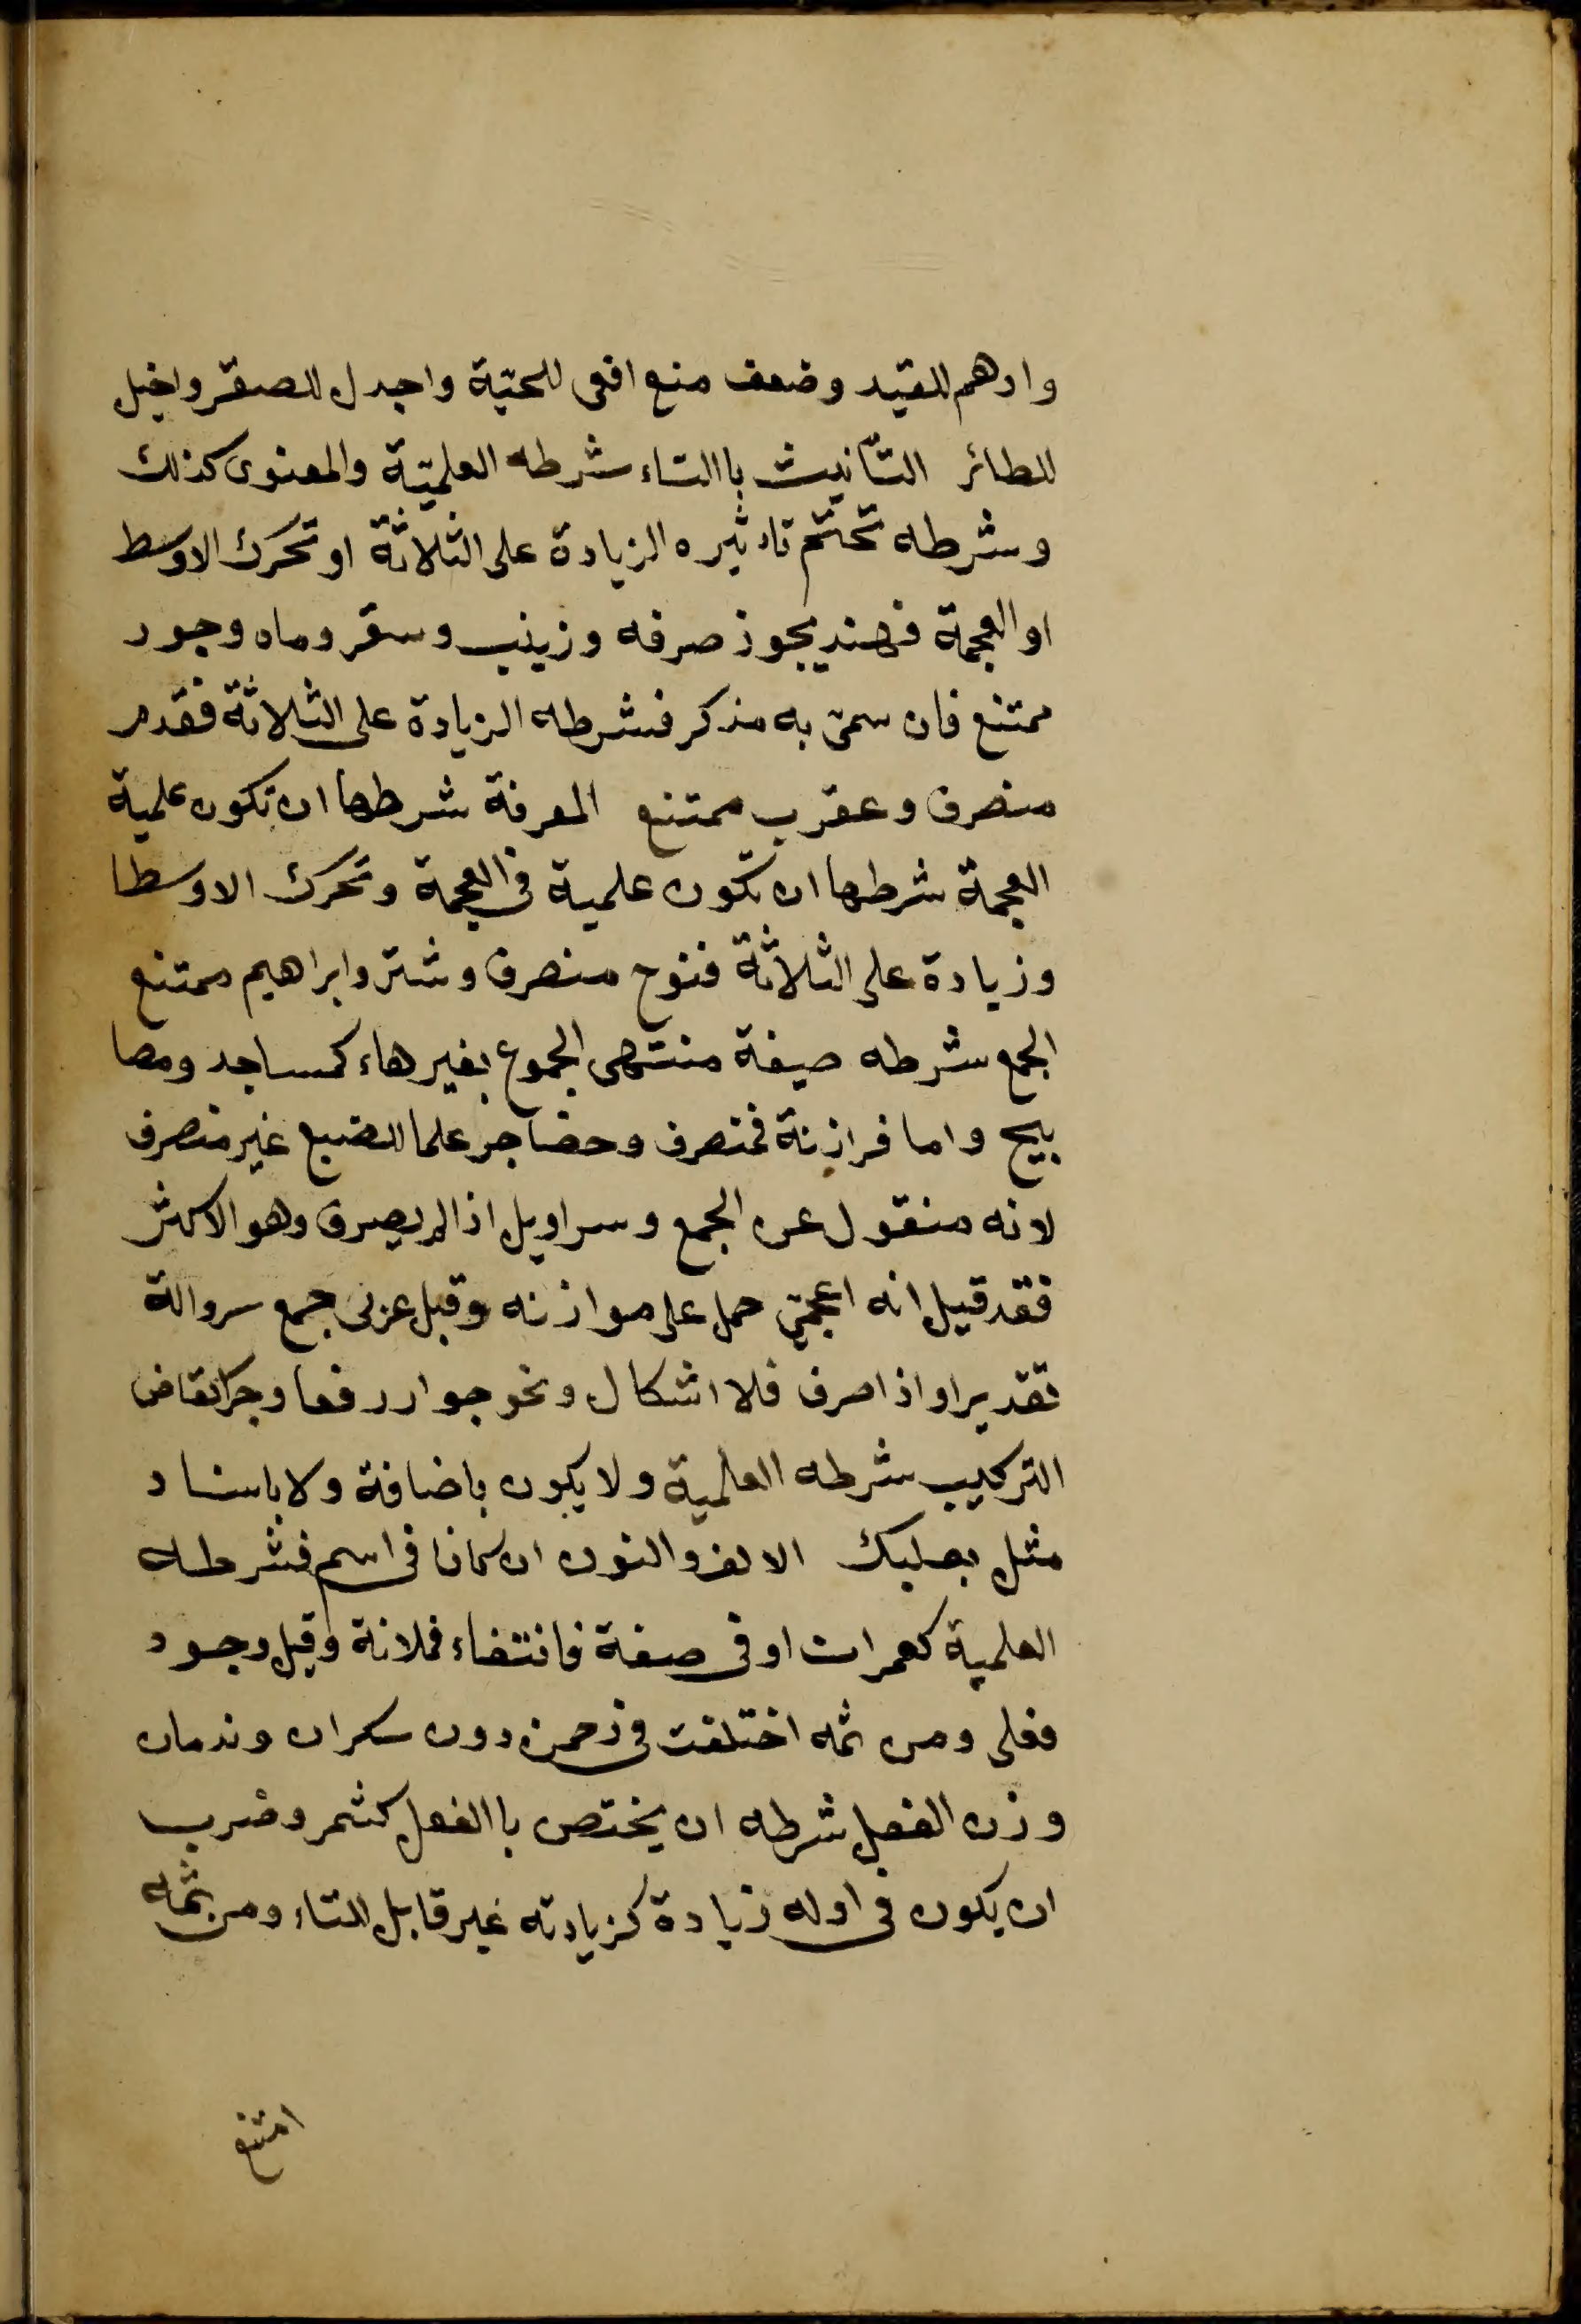 وادهم للقيد وضعف منع افعى للحيّة واجدل للصقر واخيل
للطائر التّأنيث باالتاء شرطه العلميّة والمعنوى كذلك
وشرطه تحتّم تاءثيره الزيادة على الثلاثة او تحرك الاوسط
او العجمة فهند يجوز صرفه وزينب وسقر وماه وجور
ممتنع فان سمّى به مذكر فشرطه الزيادة على الثلاثة فقدم
منصرف وعقرب ممتنع المعرفة شرطها ان تكون علمية
العجمة شرطها ان تكون علمية فى العجمة وتحرك الاوسط ا
وزيادة على الثلاثة فنوح منصرف وشتر وابراهيم ممتنع
الجمع شرطه صيغة منتهى الجموع بغير هاء كمساجد ومصا
بيح واما فرازنة فمنصرف وحضاجر علما للضبع غير منصرف
لانه منقول عن الجمع وسراويل اذا لم يصرف وهو الاكثر
فقد قيل انه اعجمّى حمل على موازنه وقيل عربى جمع سروالة
تقديرا واذا صرف فلا اشكال ونحو جوار رفعا وجرا كقاض
التركيب شرطه العلمية ولا يكون باضافة ولا باسناد
مثل بعلبك الالف والنون ان كانا فى اسم فشرطه
العلمية كعمران او فى صفة فانتفاء فعلانة وقيل وجود
فعلى ومن ثمه اختلفت فى رحمن دون سكران وندمان
وزن الفعل شرطه ان يختص باالفعل كشمر وضرب
ان يكون فى اوله زيادة كزيادته غير قابل للتاء ومن ثمه
امتنع